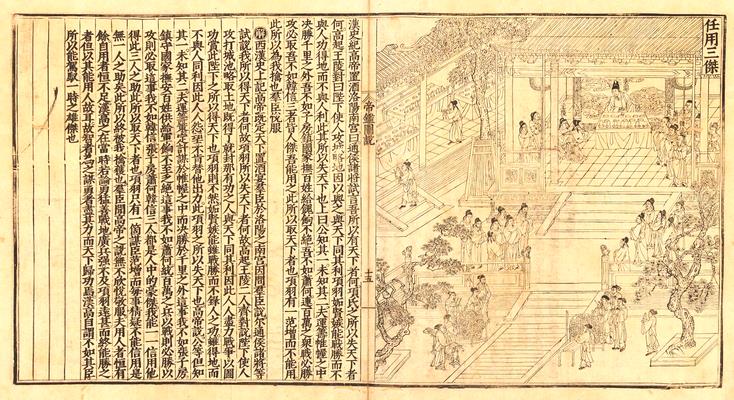 任用三傑
漢史紀高帝置酒洛陽南宮曰通侯諸將試言吾所以有天下者何項氏之所以失天下者
何高起王陵對曰陛下使人攻城略地因以與之與天下同其利項羽妬賢嫉能戰勝而不
與人功得地而不與人利此其所以失天下也上曰公知其一未知其二夫運籌帷幄之中
決勝千里之外吾不如子房鎮國家撫百姓給餽餉不絕吾不如蕭何連百萬之衆戰必勝
攻必取吾不如韓信三者皆人傑吾能用之此所以取天下者也項羽有一范增而不能用
此所以為我擒也羣臣悅服
解西漢史上記高帝既定天下置酒宴羣臣於洛陽之南宮因問羣臣說尔通侯諸將等
試說我所以得天下者何故項羽所以失天下者何故高起王陵二人齊對說陛下使人
攻打城池略取土地既得了就封那有功之人與天下同其利因此人人盡力戰爭以圖
功賞此陛下之所以得天下也項羽則不然妬賢嫉能雖戰勝而不錄人之功雖得地而
不與人同利因此人人怨望不肯替他出力此項羽之所以失天下也高帝說公等但知
其一未知其二夫運籌策定計謀於帷幄之中而決勝於千里之外這事我不如張子房
鎮守國家撫安百姓供給軍餉不至乏絕這事我不如蕭何統百萬之兵以戰則必勝以
攻則必取這事我不如韓信張子房蕭何韓信三人都是人中的豪傑我能一一信用他
得此三人之助此所以取天下者也項羽只有一箇謀臣范增而每事猜疑不能信用是
無一人之助矣此所以終被我擒獲也羣臣聞高帝之說無不欣悅敬服夫用人者恒有
餘自用者恒不足漢高之在當時若論勇猛善戰地廣兵强不及項羽遠甚而終能勝之
者但以其能用人故耳故智者為之謀勇者盡其力而天下歸功焉漢高自謂不如其臣
所以能駕馭一時之雄傑也
帝鑑圖説
十五